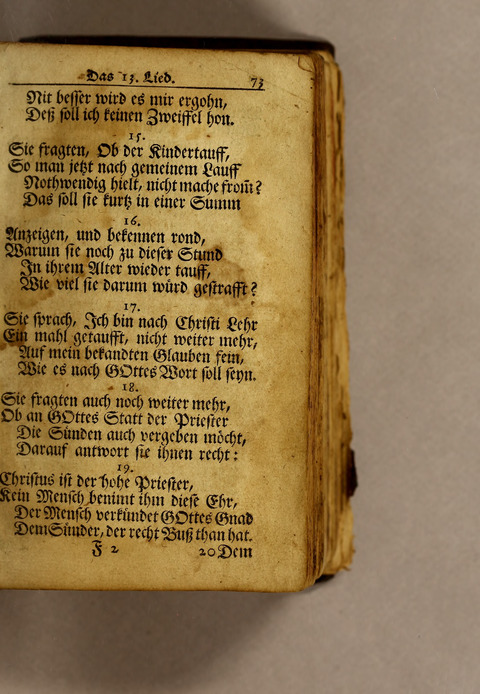 Das 13. Lied. 73
Nit besser wird es mir ergohn,
Deß soll ich keinen Zweiffel hon.
15.
Sie fragten, Ob der Kindertauff,
So man jetzt nach gemeinem Lauff
Nothwendig hielt, nicht mache from̃?
Das soll sie kurtz in einer Summ
16.
Anzeigen, und bekennen rond,
Warum sie noch zu dieser Stund
In ihrem Alter wieder tauff,
Wie viel sie darum würd gestrafft?
17.
Sie sprach, Ich bin nach Christi Lehr
Ein mahl getaufft, nicht weiter mehr,
Auf mein bekandten Glauben fein,
Wie es nach GOttes Wort soll seyn.
18.
Sie fragten auch noch weiter mehr,
Ob an GOttes Statt der Priester
Die Sünden auch vergeben möcht,
Darauf antwort sie ihnen recht:
19.
Christus ist der hohe Priester,
Kein Mensch benimt ihm diese Ehr,
Der Mensch verkündet GOttes Gnad
Dem Sünder, der recht Buß than hat.
F 2 20 Dem